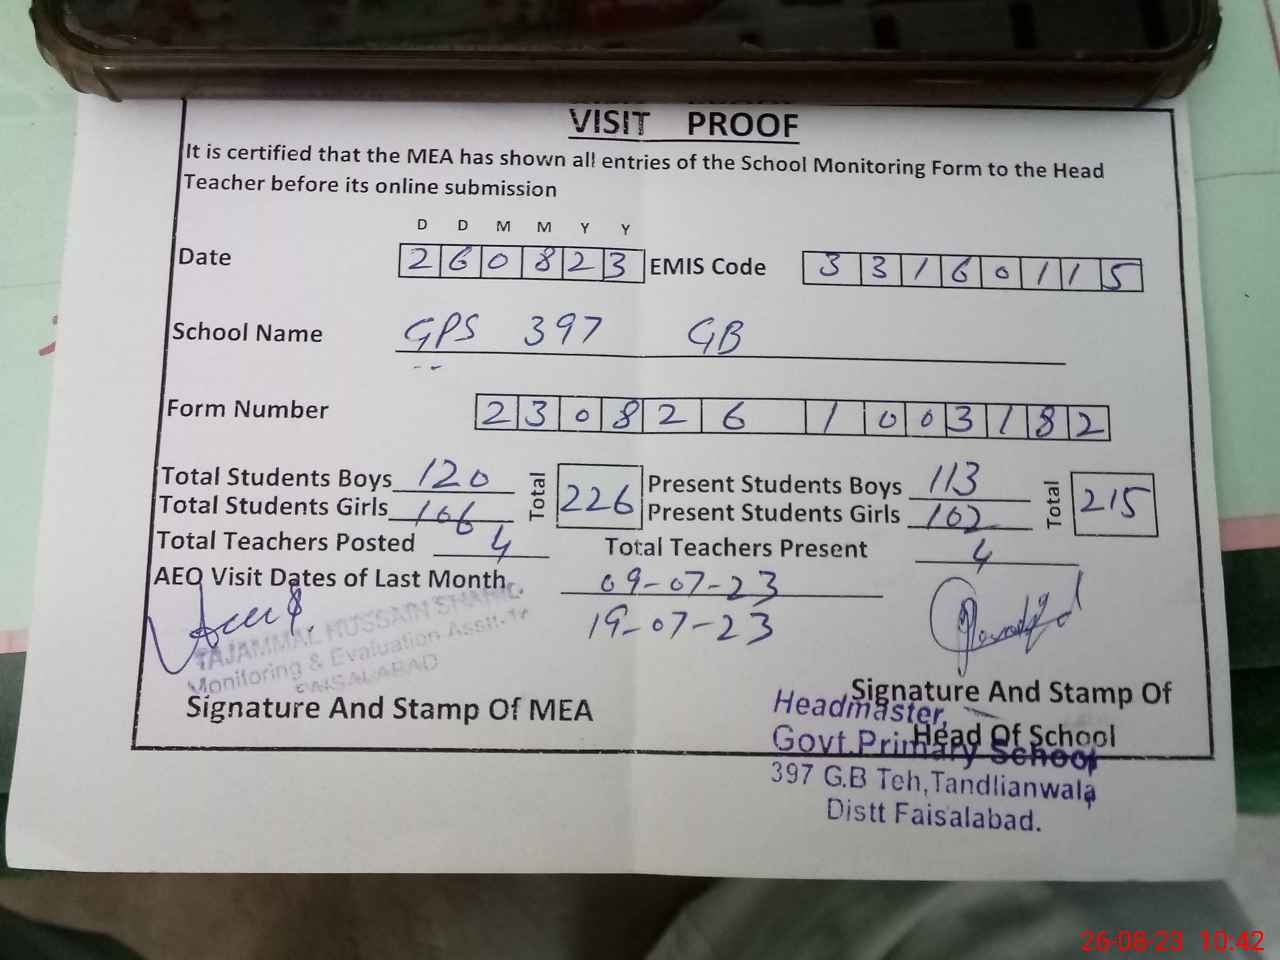 VISIT PROOF
It is certified that the MEA has shown all entries of the School Monitoring Form to the Head
Teacher before its online submission
D D M M Y Y
Date 2 6 0 8 2 3 EMIS Code 3 3 1 6 0 1 1 5
School Name GPS 397 GB
Form Number 2 3 0 8 2 6 1 0 0 3 1 8 2
Total Students Boys 120 Total 226 Present Students Boys 113 Total 215
Total Students Girls 106 Present Students Girls 102
Total Teachers Posted 4 Total Teachers Present 4
AEO Visit Dates of Last Month 09-07-23
19-07-23
TAJAMMAL HUSSAIN
Monitoring & Evaluation Assit-
FAISALABAD
Signature And Stamp Of MEA
Signature And Stamp Of
Head Of School
Headmaster,
Govt.Primary School
397 G.B Teh,Tandlianwala
Distt Faisalabad.
26-08-23 10:42